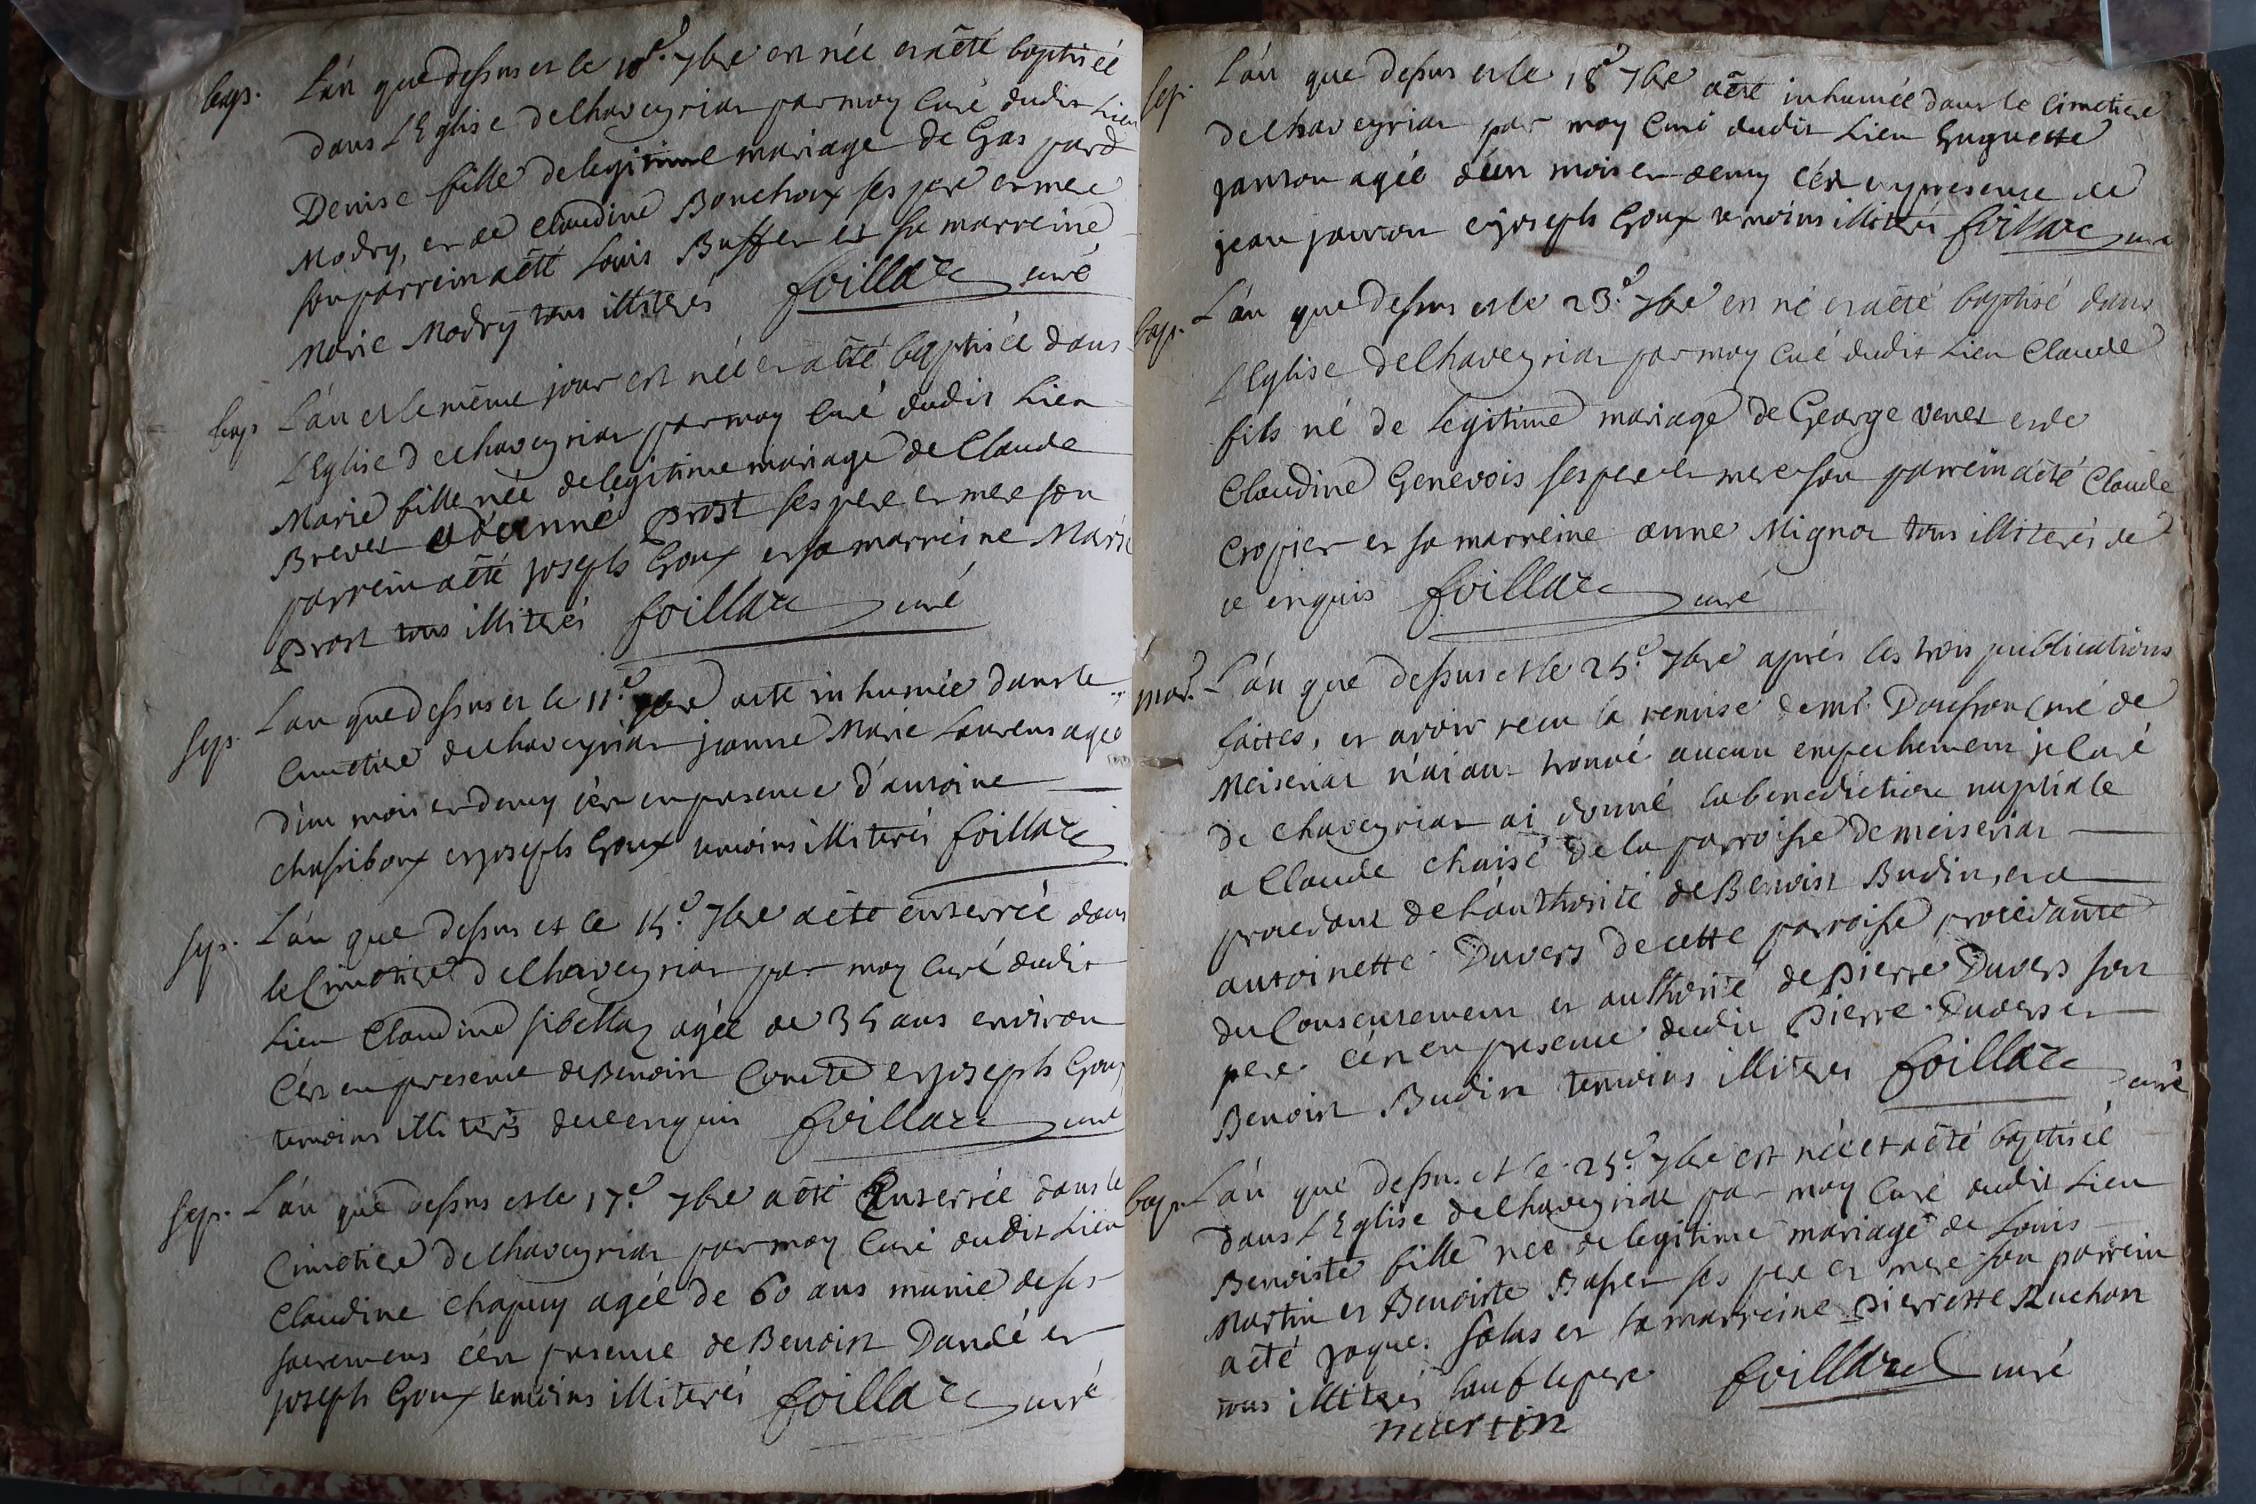 bap. L'an que dessus et le 10e 7bre est née et a été baptisée
dans L'Eglise de Chaveyriat par moy Curé dudit Lieu
Denise fille de legitime mariage de Gaspard
Modry, et de Claudine Bouchoux ses pere et mere
son parrein a été Louis Buffet et sa marreine
Marie Modry tous illiterés foillard curé
bap. L'an et le même jour est née et a été baptisée dans
L'Eglise de Chaveyriat par moy Curé dudit Lieu
Marie fille née de legitime mariage de Claude
Brevet et d'anne prost ses pere et mere son
parrein a été joseph Goux et sa marreine Marie
prost tous illiterés foillard curé
sep. L'an que dessus et le 11e 7bre a été inhumée dans le
Cimetiere de Chaveyriat jeanne Marie Laurens agée
d'un mois et demy c'est en presence d'antoine
chassiboux et joseph Goux temoins illiterés foillard
sep. L'an que dessus et le 15e 7bre a été enterrée dans
le Cimetiere de Chaveyriat par moy Curé dudit
Lieu Claudine sibellas agée de 35 ans environ
C'est en presence de Benoit Comte et joseph Goux
temoins illiterés de ce enquis foillard curé
sep. L'an que dessus et le 17e 7bre a été Enterrée dans le
Cimetiere de Chaveyriat par moy Curé dudit Lieu
Claudine chapuy agée de 60 ans munie de ses
sacremens c'est presence de Benoist Dandé et
joseph Goux temoins illiterés foillard curé
sep. L'an que dessus et le 18e 7bre a été inhumée dans le Cimetiere
de Chaveyriat par moy Curé dudit Lieu huguette
janton agée d'un mois et demy c'est en presence de
jean janton et joseph Goux temoins illiterés foillard curé
bap. L'an que dessus et le 23e 7bre est né et a été baptisé dans
L'Eglise de Chaveyriat par moy Curé dudit Lieu Claude
fils né de legitime mariage de George venet et de
Claudine Genevois ses pere et mere son parrein a été Claude
Cropier et sa marreine anne Mignot tous illiterés de
ce enquis foillard curé
mar. L'an que dessus et le 25e 7bre aprés les trois publications
faites, et avoir recu la remise de mr. Doufron Curé de
Meiseriat n'aiant trouvé aucun empechement je Curé
de Chaveyriat ai donné la benediction nuptiale
a Claude chaisé de la parroisse de meiseriat
procedant de l'authorité de Benoist Budin, et a
antoinette Duvers de cette parroisse procedante
du Consentement et authorité de pierre Duvers son
pere c'est en presence dudit pierre Duvers et
Benoist Budin temoins illiteres foillard curé
bap. L'an que dessus et le 25e 7bre est née et a été baptisée
dans L'Eglise de Chaveyriat par moy Curé dudit Lieu
Benoiste fille née de legitime mariage de Louis
Martin et Benoiste Basset ses pere et mere son parrein
a été jaque. salus et sa marreine pierrette Ruchon
tous illiterés sauf le pere foillard curé
martin